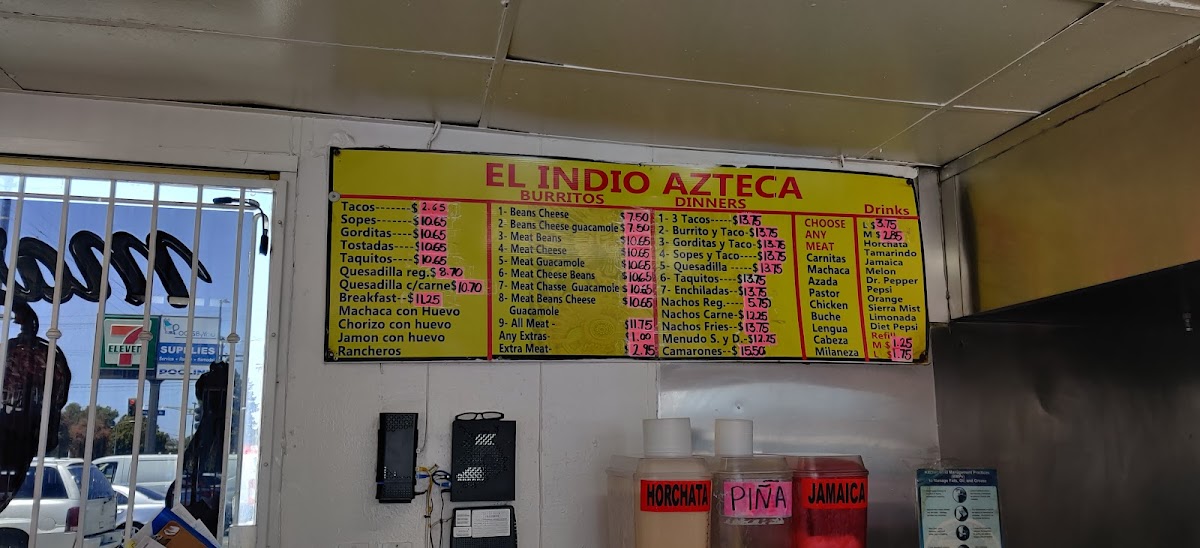 EL INDIO AZTECA
Tacos------$ 2.65
Sopes-------$10.65
Gorditas----$10.65
Tostadas----$10.65
Taquitos----$10.65
Quesadilla reg.$ 8.70
Quesadilla c/carne$10.70
Breakfast--$11.25
Machaca con Huevo
Chorizo con huevo
Jamon con huevo
Rancheros
BURRITOS
1- Beans Cheese $7.50
2- Beans Cheese guacamole $7.50
3- Meat Beans $10.65
4- Meat Cheese $10.65
5- Meat Guacamole $10.65
6- Meat Cheese Beans $10.65
7- Meat Chasse Guacamole $10.65
8- Meat Beans Cheese $10.65
Guacamole
9- All Meat - $11.75
Any Extras- $1.00
Extra Meat- 2.95
DINNERS
1- 3 Tacos----$13.75
2- Burrito y Taco-$13.75
3- Gorditas y Taco-$13.75
4- Sopes y Taco----$13.75
5- Quesadilla -----$13.75
6- Taquitos---$13.75
7- Enchiladas--$13.75
Nachos Reg.----5.750
Nachos Carne-$12.25
Nachos Fries--$13.75
Menudo S. y D.-$12.25
Camarones--$15.50
CHOOSE
ANY
MEAT
Carnitas
Machaca
Azada
Pastor
Chicken
Buche
Lengua
Cabeza
Milaneza
Drinks
L $3.75
M $2.85
Horchata
Tamarindo
Jamaica
Melon
Dr. Pepper
Pepsi
Orange
Sierra Mist
Limonada
Diet Pepsi
Refill
M $1.25
L $1.75
7
ELEVEN
SUPPLIES
HORCHATA
PIÑA
JAMAICA